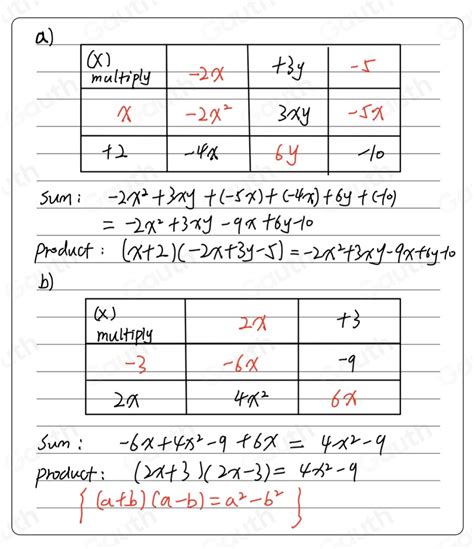 a)
(x) multiply -2x +3y -5
x -2x² 3xy -5x
+2 -4x 6y -10
Sum: -2x²+3xy+(-5x)+(-4x)+6y+(-10)
= -2x²+3xy-9x+6y-10
Product: (x+2)(-2x+3y-5)=-2x²+3xy-9x+6y-10
b)
(x) multiply 2x +3
-3 -6x -9
2x 4x² 6x
Sum: -6x+4x²-9+6x = 4x²-9
Product: (2x+3)(2x-3)= 4x²-9
{ (a+b)(a-b)=a²-b² }